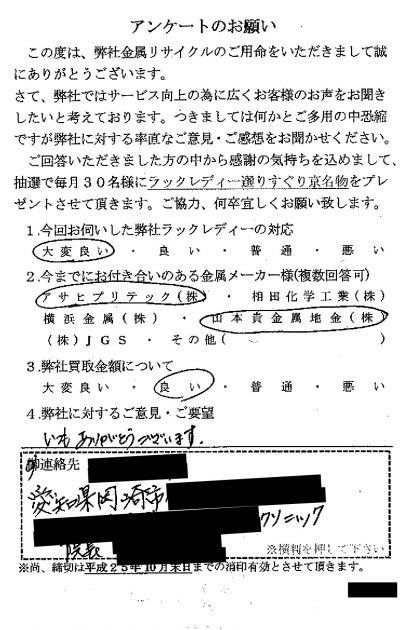 アンケートのお願い
この度は、弊社金属リサイクルのご用命をいただきまして誠
にありがとうございます。
さて、弊社ではサービス向上の為に広くお客様のお声をお聞き
したいと考えております。つきましては何かとご多用の中恐縮
ですが弊社に対する率直なご意見・ご感想をお聞かせください。
ご回答いただきました方の中から感謝の気持ちを込めまして、
抽選で毎月30名様にラックレディー選りすぐり京名物をプレ
ゼントさせて頂きます。ご協力、何卒宜しくお願い致します。
1.今回お伺いした弊社ラックレディーの対応
大変良い ・ 良い ・ 普通 ・ 悪い
2.今までにお付き合いのある金属メーカー様(複数回答可)
アサヒプリテック(株) ・ 相田化学工業(株)
横浜金属(株) ・ 山本貴金属地金(株)
(株)JGS ・ その他( )
3.弊社買取金額について
大変良い ・ 良い ・ 普通 ・ 悪い
4.弊社に対するご意見・ご要望
いつもありがとうございます。
御連絡先
愛知県岡崎市
クリニック
院長
※横判を押して下さい
※尚、締切は平成25年10月末日までの消印有効とさせて頂きます。